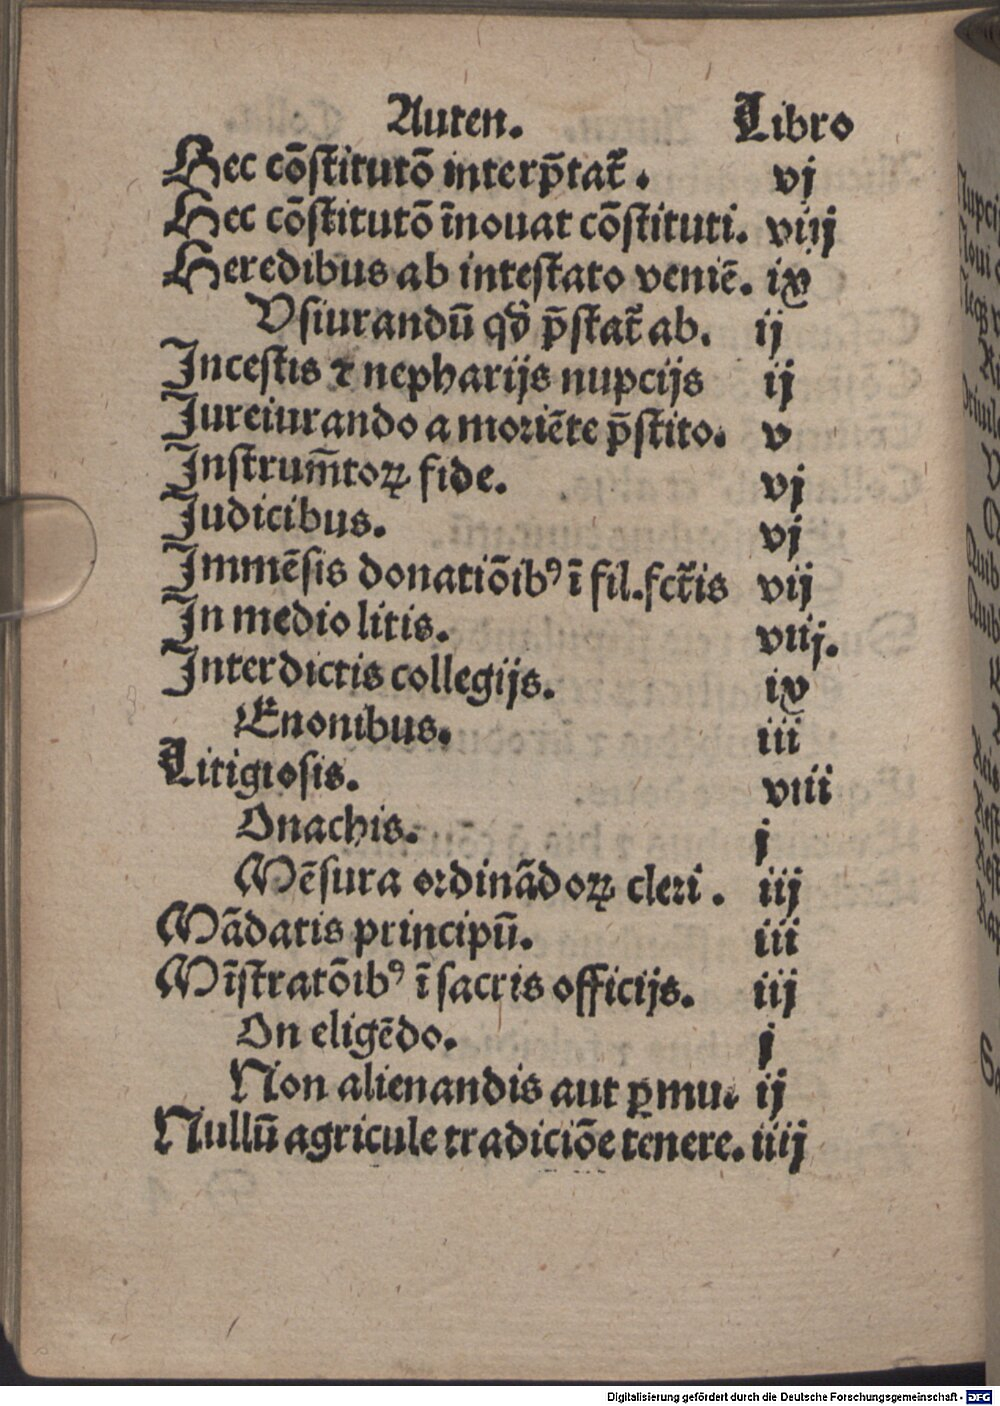 Auten. Libro
Hec cōstitutō interp̄tat̄. vj
Hec cōstitutō īnouat cōstituti. viij
Heredibus ab intestato veniē. ix
Vsiurandū qd̄ p̄stat̄ ab. ij
Incestis ⁊ nepharijs nupcijs ij
Iureiurando a moriēte p̄stito. v
Instrum̄toꝝ fide. vj
Judicibus. vj
Immēsis donatiōibꝰ ī fil. fct̄is vij
In medio litis. viij.
Interdictis collegijs. ix
Enonibus. iii
Litigiosis. viii
Onachis. j
Mēsura ordinādoꝝ cleri. iij
Mādatis principū. iii
Mīstratōibꝰ ī sacris officijs. iij
On eligēdo. j
Non alienandis aut ꝑmu. ij
Nullū agricule tradiciōe tenere. iiij
Digitalisierung gefördert durch die Deutsche Forschungsgemeinschaft - DFG